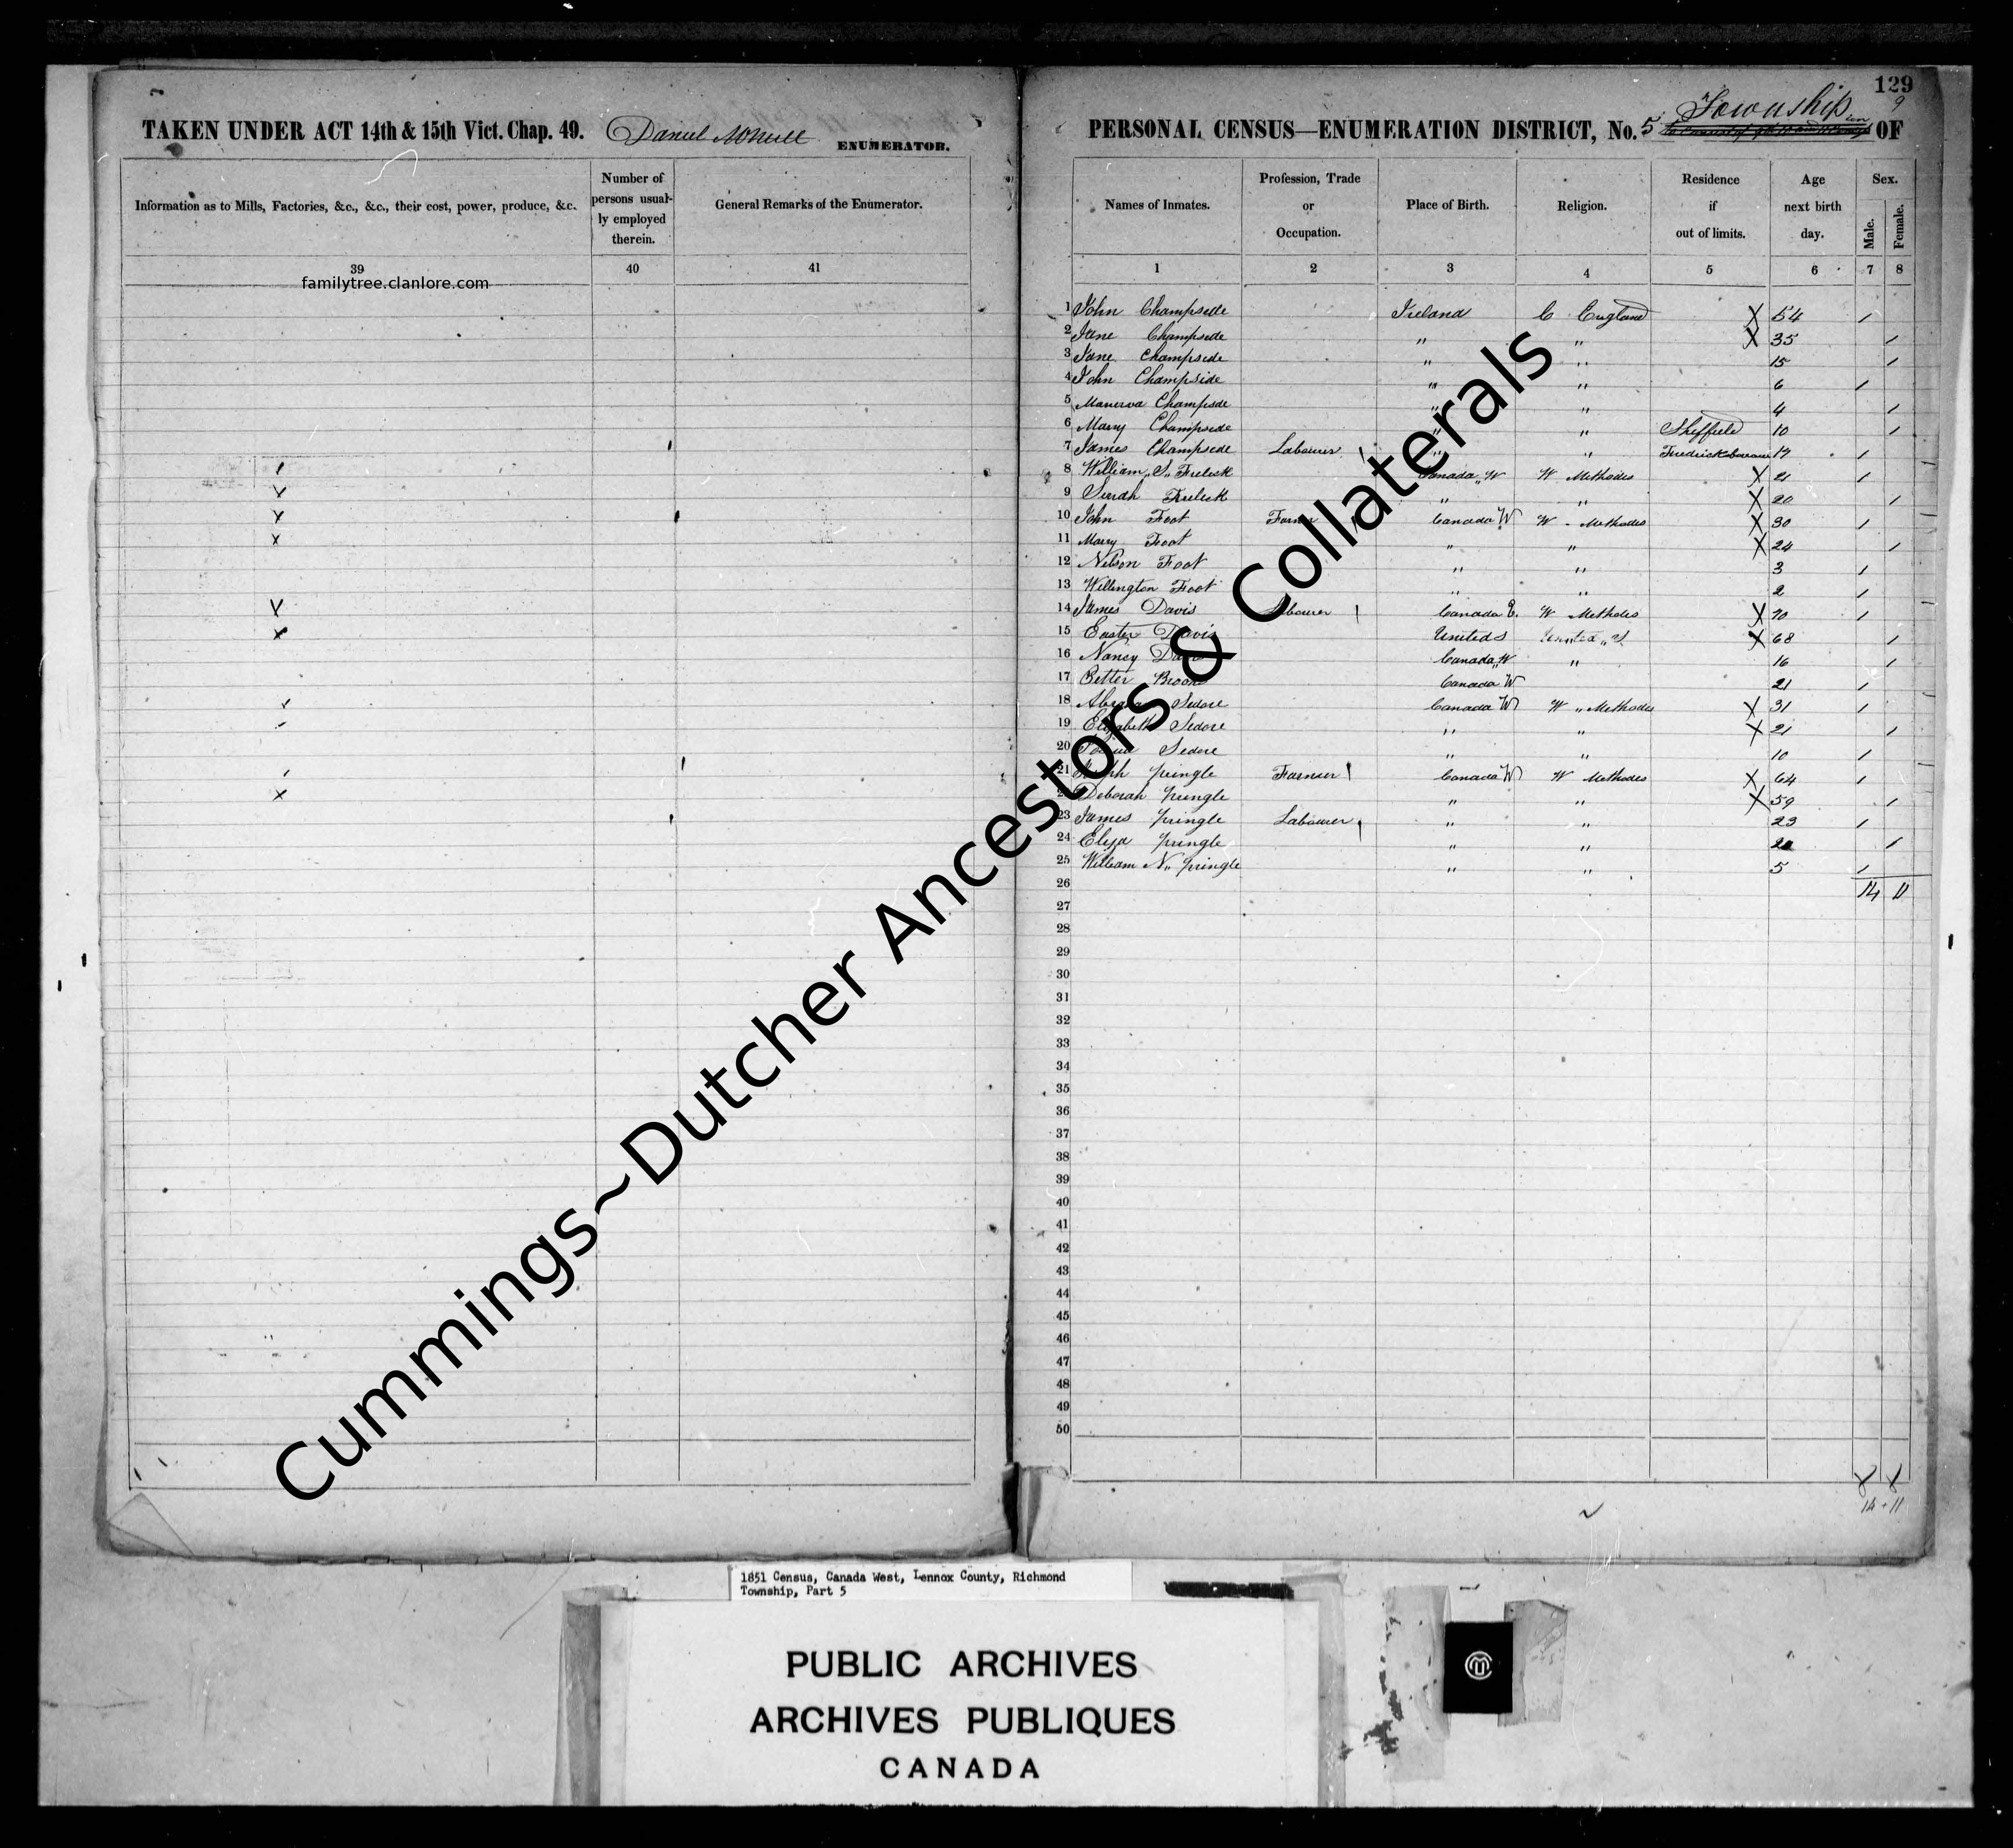 129
9
TAKEN UNDER ACT 14th & 15th Vict. Chap. 49. Daniel McNeill ENUMERATOR.
Information as to Mills, Factories, &c., &c., their cost, power, produce, &c. Number of persons usual-ly employed therein. General Remarks of the Enumerator.
39 40 41
familytree.clanlore.com
PERSONAL CENSUS—ENUMERATION DISTRICT, No. 5 Township OF
Names of Inmates. Profession, Trade or Occupation. Place of Birth. Religion. Residence if out of limits. Age next birth day. Sex. Male. Female.
1 2 3 4 5 6 7 8
1 John Champside Ireland C England X 54 /
2 Jane Champsede " " X 35 /
3 Jane Champside " " 15 /
4 John Champside " " 6 /
5 Manerva Champsde " " 4 /
6 Mary Champsede " " Sheffield 10 /
7 James Champsede Labourer / " " 17 /
8 William "S" Frelick Canada "W W Methodes X 21 /
9 Sarah Frelick " " X 20 /
10 John Foot Farmer / Canada W W - Methodes X 30 /
11 Mary Foot " " X 24 /
12 Nelson Foot " " 3 /
13 Willington Foot " " 2 /
14 James Davis Labourer / Canada E. W Methodes X 70 /
15 Easter Davis United S X 68 /
16 Nancy Davis Canada "W " 16 /
17 Brook Canada W 21 /
18 Abraham Sedore Canada W W " Methodes X 31 /
19 Elizabeth Sedore " " X 21 /
20 Sedore " " 10 /
21 Pringle Farmer / Canada W W Methodes X 64 /
22 Deborah Pringle " " X 59 /
23 James Pringle Labourer / " " 23 /
24 Eliza Pringle " " /
25 William N" Pringle " " 5 /
26 14 11
27
28
29
30
31
32
33
34
35
36
37
38
39
40
41
42
43
44
45
46
47
48
49
50
14 - 11
Cummings~Dutcher Ancestors & Collaterals
1851 Census, Canada West, Lennox County, Richmond
Township, Part 5
PUBLIC ARCHIVES
ARCHIVES PUBLIQUES
CANADA